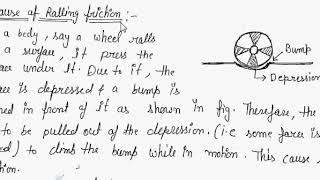 ause of Rolling friction:-
a body, say a wheel rolls
a surface, it press the
ace under it. Due to it, the
ce is depressed & a bump is
med in front of it as shown in fig. Therefore, the
to be pulled out of the depression. (i.e some force is
ed) to climb the bump while in motion. This cause
tion.
Bump
Depression